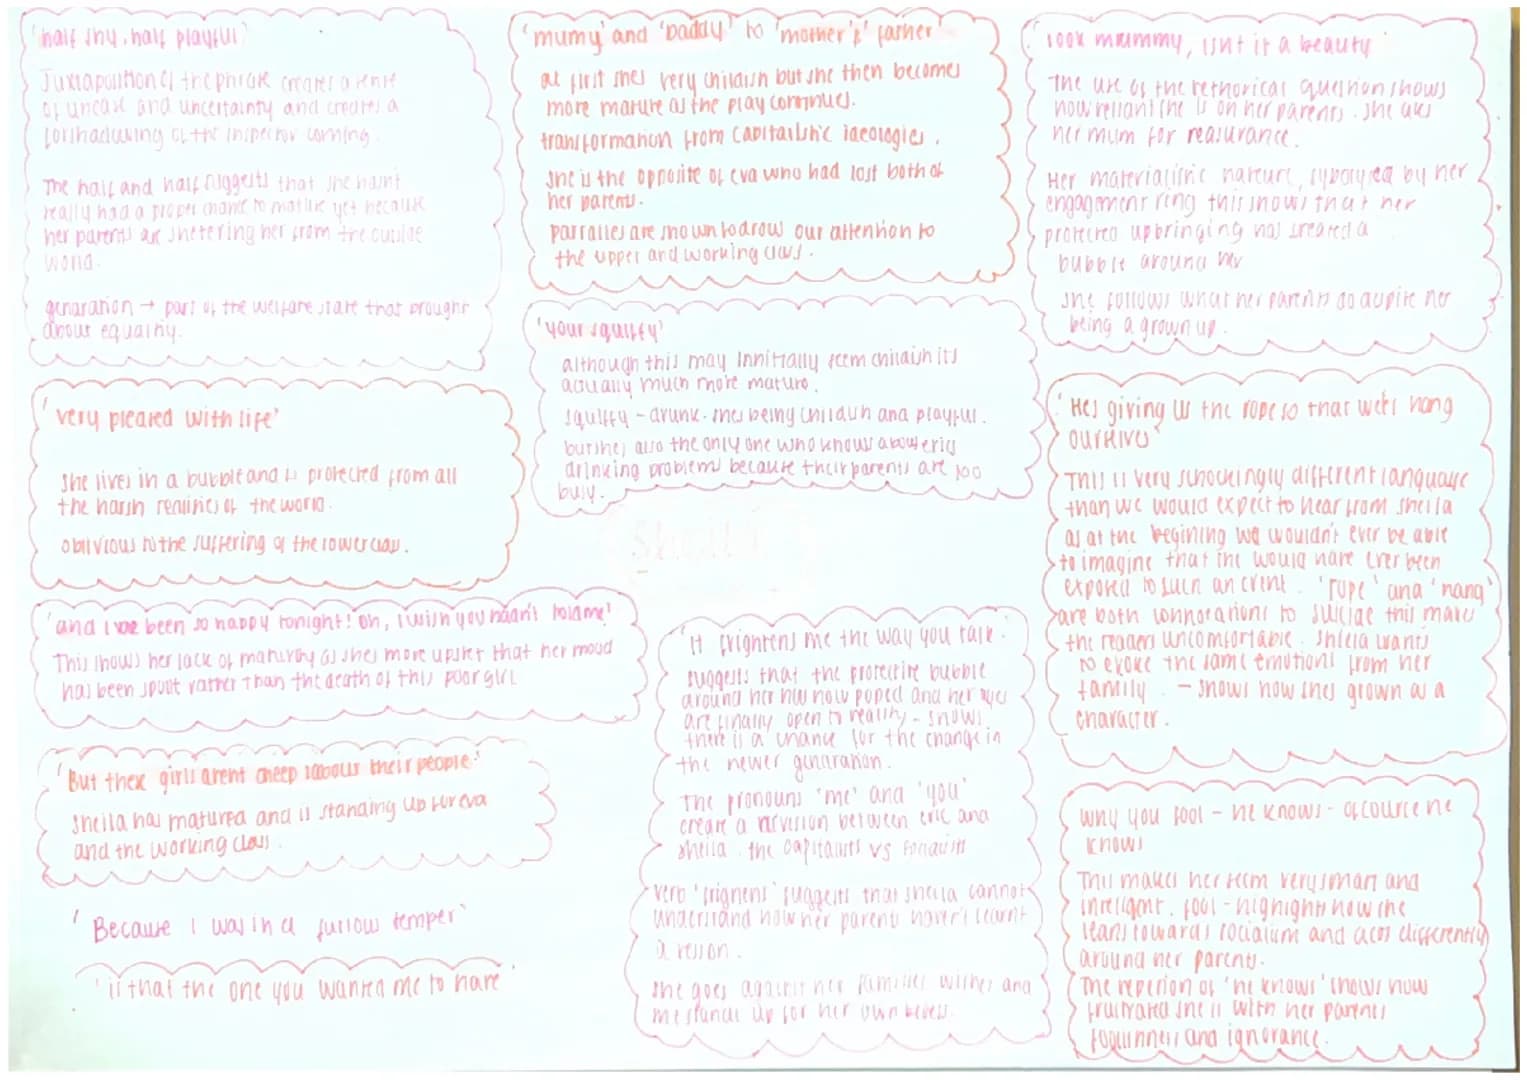 'half shy, half playful'
Juxtaposition of the phrase creates a sense
of unease and uncertainty and creates a
forshadowing of the inspector coming.
The half and half suggests that she hasnt
really had a proper chance to mature yet because
her parents are sheltering her from the outside
world.
genaration → part of the welfare state that brought
about equality.
'very pleased with life'
she lives in a bubble and is protected from all
the harsh realities of the world.
oblivious to the suffering of the lower class.
'and I've been so happy tonight! Oh, I wish you hadn't told me!'
This shows her lack of maturity as shes more upset that her mood
has been spoilt rather than the death of this poor girl
'But these girls arent cheep labour their people'
sheila has matured and is standing up for eva
and the working class.
'Because I was in a furious temper'
'is that the one you wanted me to have'
'mumy' and 'daddy' to 'mother' & 'father'
at first shes very childish but she then becomes
more mature as the play continues.
transformation from capitailstic ideologies.
she is the opposite of eva who had lost both of
her parents.
parralles are shown to draw our attention to
the upper and working class.
'your squiffy'
although this may innitially seem childish its
actually much more mature.
squiffy - drunk. shes being childish and playful.
but shes also the only one who knows about erics
drinking problems because their parents are too
busy.
Sheila
'It frightens me the way you talk.'
suggests that the protective bubble
around her has now poped and her eyes
are finally open to reality - shows
there is a chance for the change in
the newer genaration.
The pronouns 'me' and 'you'
create a division between eric and
sheila. the capitalists vs socialists
verb 'frightens' suggests that sheila cannot
understand how her parents haven't learnt
a lesson.
she goes against her families wishes and
stands up for her own beliefs.
'look mummy, isnt it a beauty'
The use of the rethorical question shows
how reliant she is on her parents. she asks
her mum for reasurance.
Her materialistic nature, by her
engagement ring this shows that her
protected upbringing has created a
bubble around her
she follows what her parents do dispite her
being a grown up.
'Hes giving us the rope so that we'll hang
ourselves'
This is very schockingly different language
than we would expect to hear from sheila
as at the begining we wouldn't ever be able
to imagine that she would have ever been
exposed to such an event. 'rope' and 'hang'
are both connotations to suicide this makes
the readers uncomfortable. Shiela wants
to evoke the same emotions from her
family. - shows how shes grown as a
character.
why you fool - he knows - ofcource he
knows
This makes her seem very smart and
intelligent. fool - highlights how she
leans towards socialism and acts differently
around her parents.
The repetion of 'he knows' shows how
frustrated she is with her parents
foolishness and ignorance.